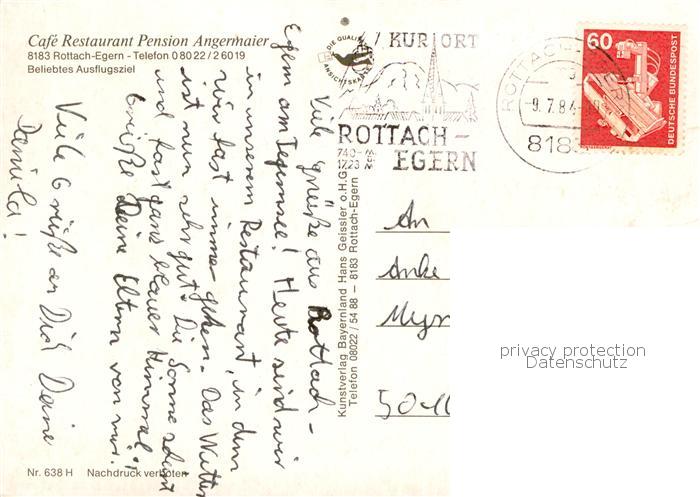 Café Restaurant Pension Angermaier
8183 Rottach-Egern - Telefon 0 80 22 / 2 6019
Beliebtes Ausflugsziel
Viele Grüße aus Rottach-
Egern am Tegernsee! Heute sind wir
in unserem Restaurant, in dem
wir fast immer gehen. Das Wetter
ist nun sehr gut. Die Sonne scheint
und fast ganz blauer Himmel!
Grüße Deine Eltern von mir.
Viele Grüße an Dich Deine
Daniela!
Nr. 638 H Nachdruck verboten
DIE QUALITÄTS
ANSICHTSKARTE
Kunstverlag Bayernland Hans Geissler o.H.G.
Telefon 08022 / 54 88 – 8183 Rottach-Egern
KURORT
ROTTACH-
EGERN
740-
1723
ROTTACH-EGERN
-9.7.84
8183
60
DEUTSCHE BUNDESPOST
An
Anke
50
privacy protection
Datenschutz